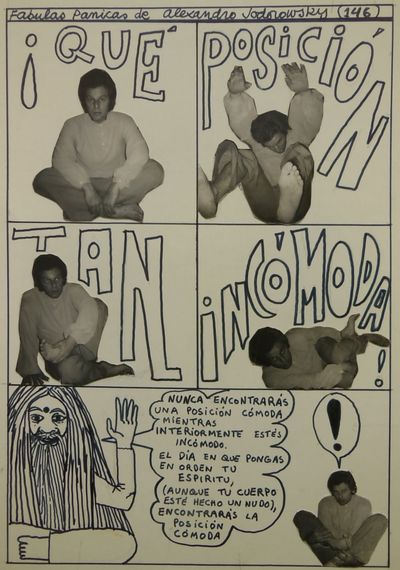 Fabulas Panicas de Alexandro Jodorowsky (146)
¡QUÉ
POSICIÓN
TAN
INCÓMODA!
NUNCA ENCONTRARÁS
UNA POSICIÓN CÓMODA
MIENTRAS
INTERIORMENTE ESTÉS
INCÓMODO.
EL DÍA EN QUE PONGAS
EN ORDEN TU
ESPIRITU,
(AUNQUE TU CUERPO
ESTÉ HECHO UN NUDO),
ENCONTRARÁS LA
POSICIÓN
CÓMODA
!